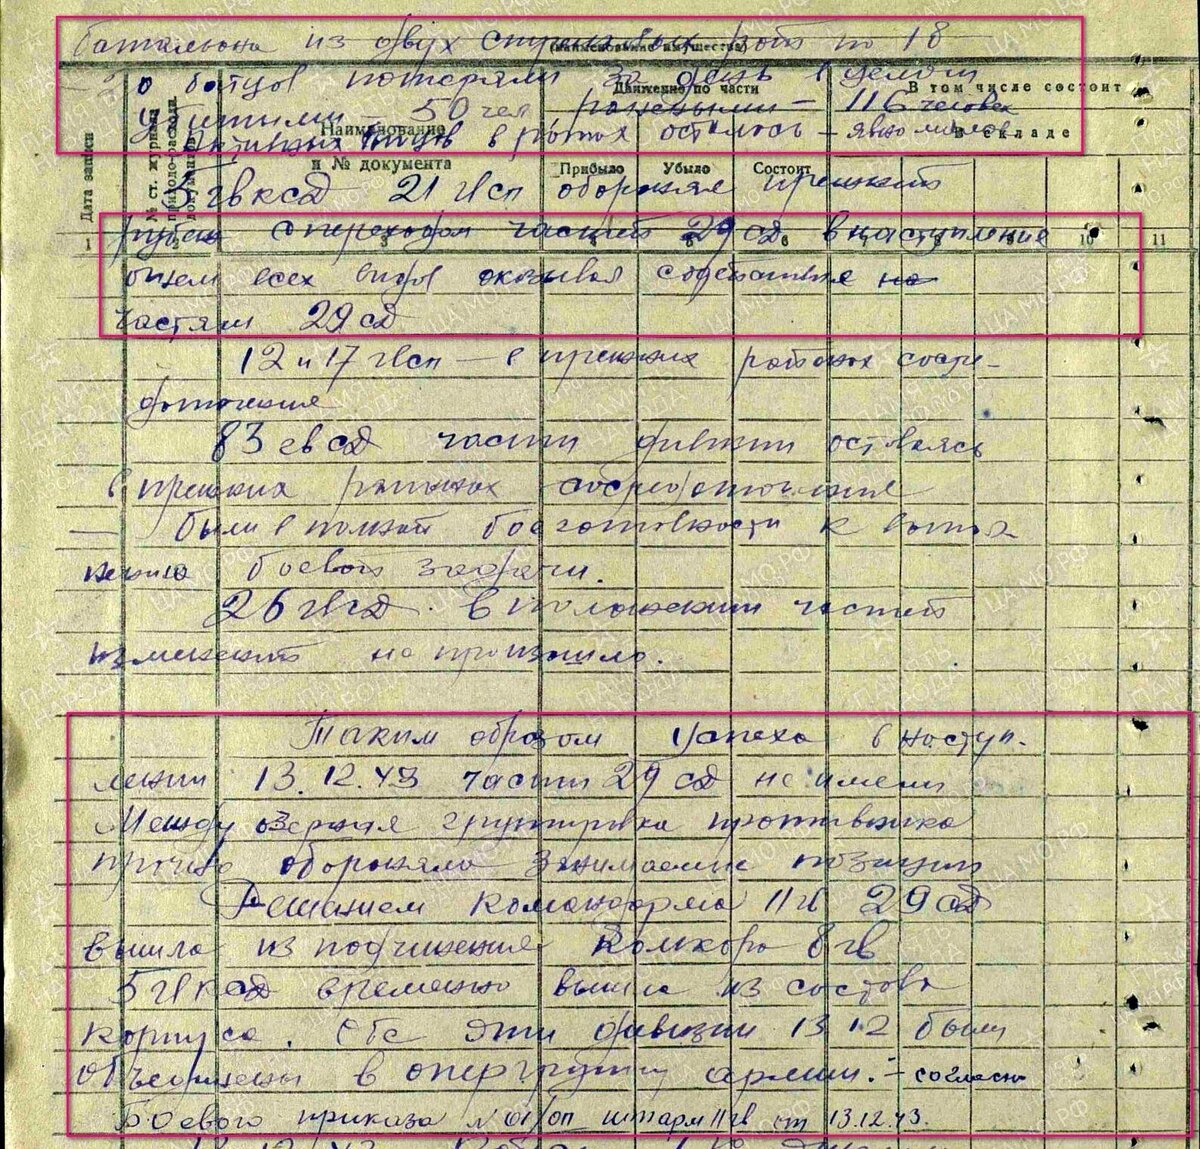 батальона из двух стрелковых рот по 18
(наименование имущества)
о бойцов потеряли за день в целом
Движение по части
В том числе состоит
убитыми 50 чел ранеными — 116 человек
Наименование
и № документа
Активных бойцов в ротах осталось — явно мало
в складе
Дата записи
№ ст. журнала
приходо-расход.
документов
Прибыло Убыло Состоит
5 гвксд 21 гвсп обороняя прежний
1 2 3 4 5 6 7 8 9 10 11
рубеж с переходом частей 29 сд в наступление
огнем всех видов оказывал содействие на
частям 29 сд
12 и 17 гвсп — в прежних районах сосре-
доточения
83 гвсд части дивизии оставаясь
в прежних районах сосредоточения
— были в полной боеготовности к выпол-
нению боевой задачи.
26 гвсд. В положении частей
изменений не произошло.
Таким образом успеха в наступ-
лении 13.12.43 части 29 сд не имели
Между озерная группировка противника
прочно обороняла занимаемые позиции
Решением Командарма 11 гв 29 сд
вышла из подчинения Комкора 8 гв
5 гвксд временно вышла из состава
корпуса. Обе эти дивизии 13.12 были
объединены в опергруппу армии. — согласно
Боевого приказа № 01/оп штарм 11 гв от 13.12.43.